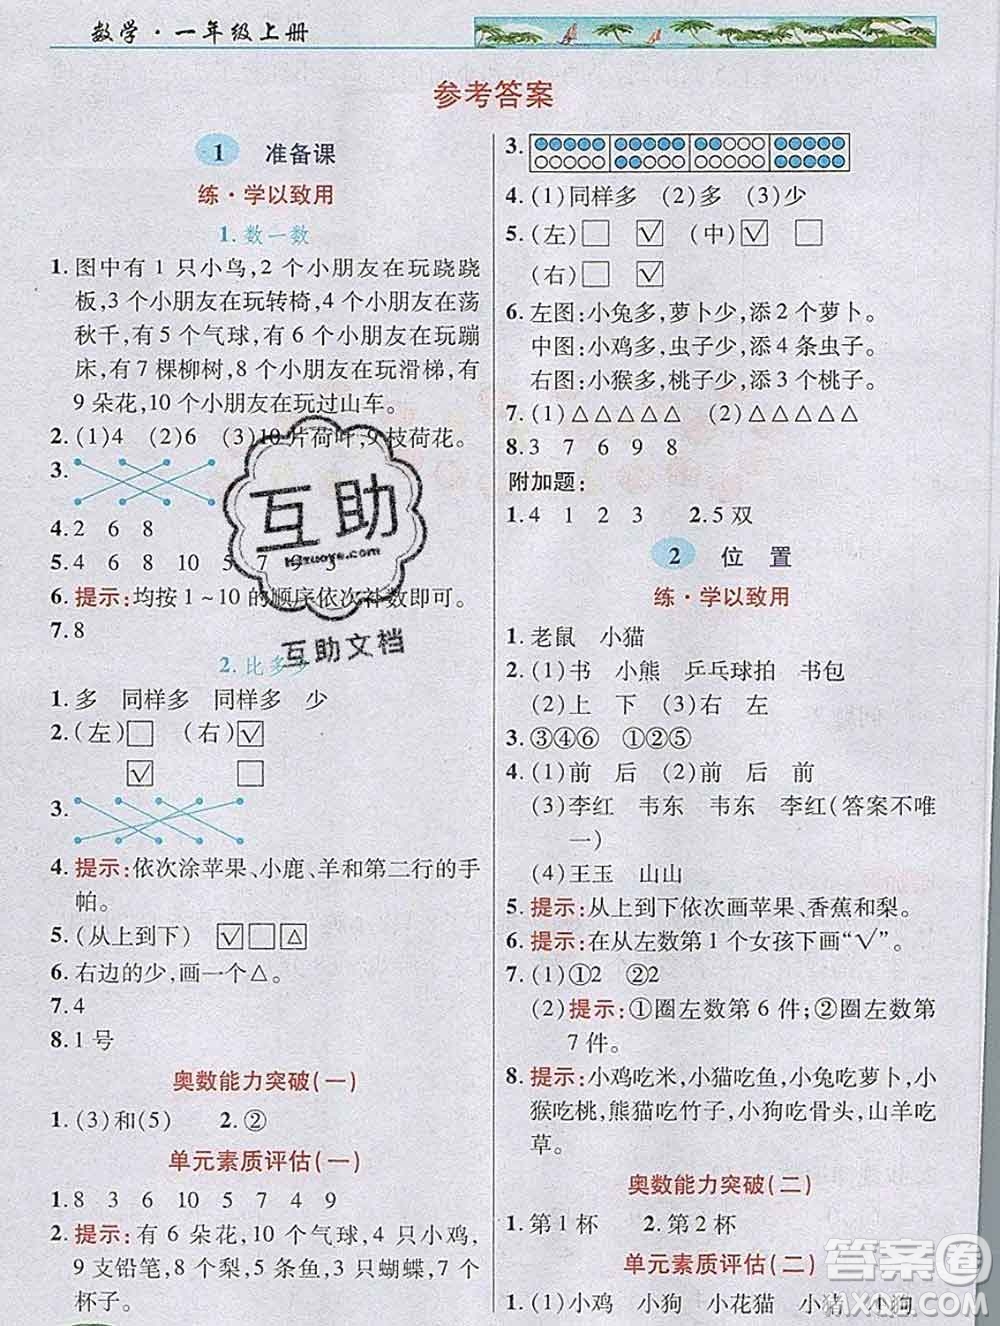 数学·一年级上册
参考答案
1 准备课
练·学以致用
1.数一数
1.图中有1只小鸟,2个小朋友在玩跷跷
板,3个小朋友在玩转椅,4个小朋友在荡
秋千,有5个气球,有6个小朋友在玩蹦
床,有7棵柳树,8个小朋友在玩滑梯,有
9朵花,10个小朋友在玩过山车。
2.(1)4 (2)6 (3)10片荷叶,9枝荷花。
3.
4.2 6 8
5.4 6 8 10 5 7 9 3
6.提示:均按1~10的顺序依次补数即可。
7.8
2.比多少
1.多 同样多 同样多 少
2.(左)□ (右)☑
☑ □
3.
4.提示:依次涂苹果、小鹿、羊和第二行的手
帕。
5.(从上到下) ☑ □ △
6.右边的少,画一个△。
7.4
8.1号
奥数能力突破(一)
1.(3)和(5) 2.②
单元素质评估(一)
1.8 3 6 10 5 7 4 9
2.提示:有6朵花,10个气球,7只小鸡,
9支铅笔,8个梨,5条鱼,3只蝴蝶,4个
杯子。
3.
4.(1)同样多 (2)多 (3)少
5.(左)□ ☑ (中)☑ □
(右)□ ☑
6.左图:小兔多,萝卜少,添2个萝卜。
中图:小鸡多,虫子少,添4条虫子。
右图:小猴多,桃子少,添5个桃子。
7.(1)△△△△△ (2)△△△△△
8.3 7 6 9 8
附加题:
1.4 1 2 3 2.5双
2 位置
练·学以致用
1.老鼠 小猫
2.(1)书 小熊 乒乓球拍 书包
(2)上 下 (3)右 左
3.③④⑥ ①②⑤
4.(1)前 后 (2)前 后 前 后
(3)李红 韦东 韦东 李红(答案不唯
一)
(4)王玉 山山
5.提示:从上到下依次画苹果、香蕉和梨。
6.提示:在从左数第1个女孩下画“√”。
7.(1)①2 ②2
(2)提示:①圈左数第6件;②圈左数第
7件。
8.提示:小鸡吃米,小猫吃鱼,小兔吃萝卜,小
猴吃桃,熊猫吃竹子,小狗吃骨头,山羊吃
草。
奥数能力突破(二)
1.第1杯 2.第2杯
单元素质评估(二)
1.(1)小鸡 小狗 小花猫 小猪 小狗
互助
互助文档
答案圈
MXQE.COM